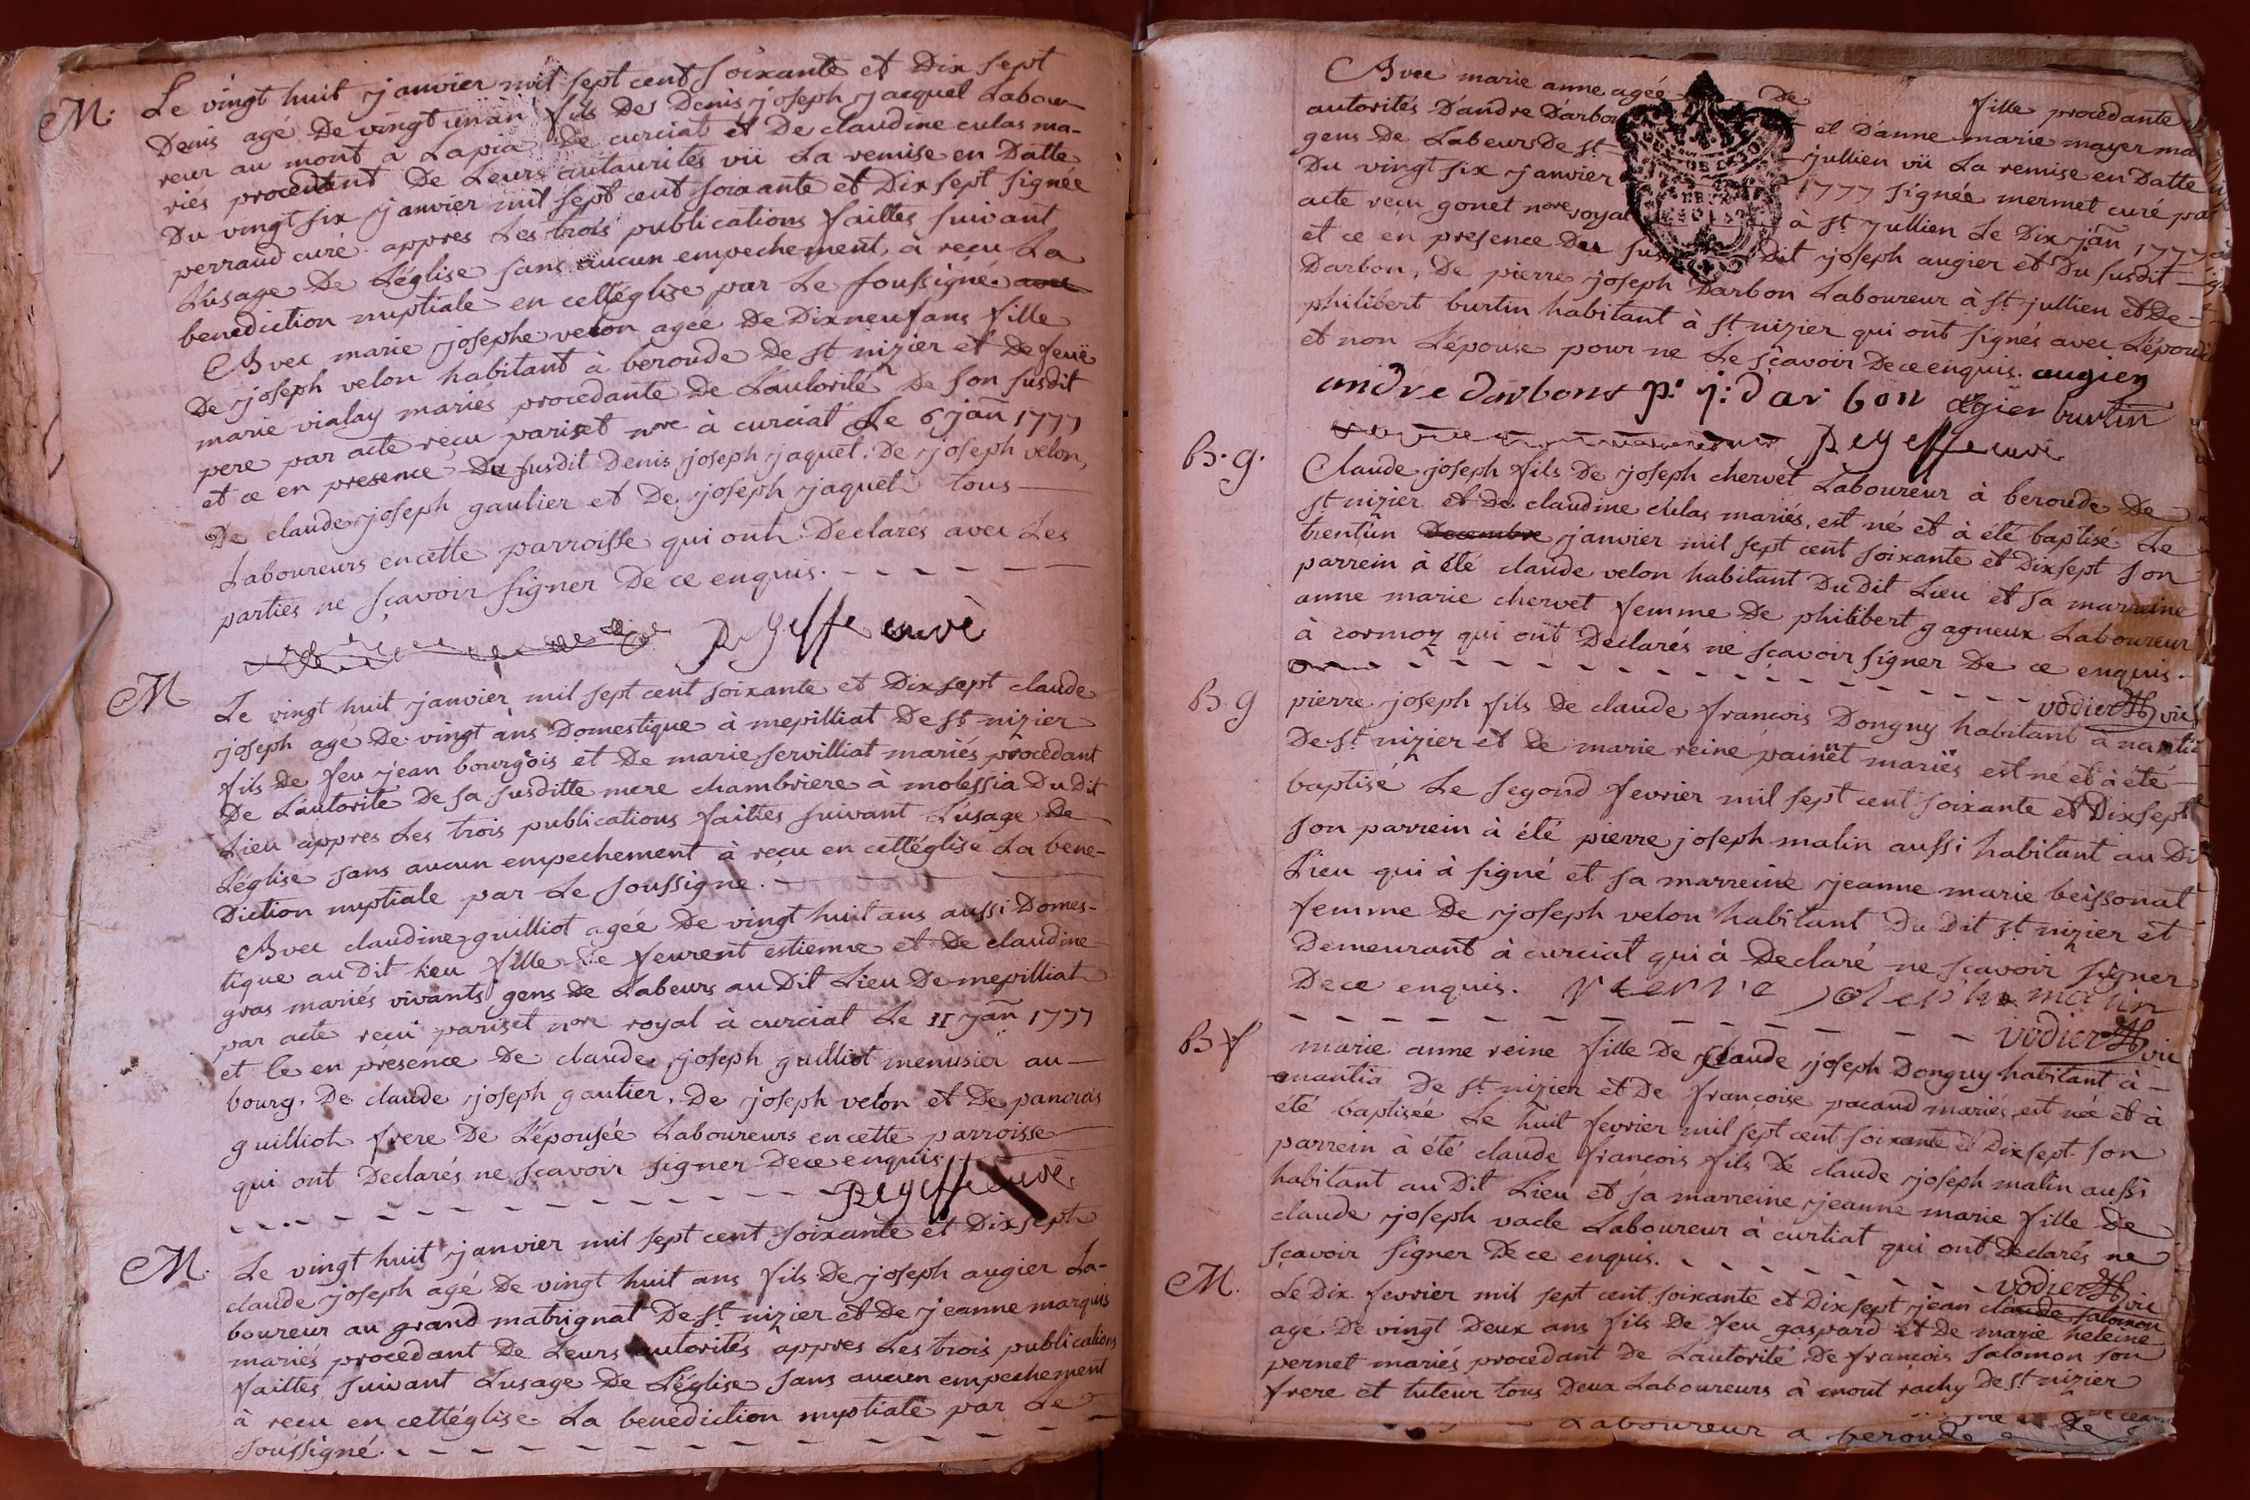 M. Le vingt huit janvier mil sept cent soixante et Dix sept
Denis agé De vingt un an fils De Denis joseph jacquet Labou-
reur au mont à Lapia De curciat et De claudine culas ma-
riés procedant De Leurs autaurités vü La remise en Datte
Du vingt six janvier mil sept cent soixante et Dix sept signée
perraud curé appres Les trois publications faittes suivant
L'usage De L'église sans aucun empechement, à reçu La
benediction nuptiale en cett'église par Le soussigné
Avec marie josephe velon agée De Dix neuf ans fille
De joseph velon habitant à beroude De st nizier et De feuë
marie vialay mariés procedante De L'autorité De son susdit
pere par acte reçu pariset nore à curciat Le 6 jan 1777
et ce en presence Du susdit Denis joseph jaquet. De joseph velon,
De claude joseph gautier et De joseph jaquet tous
Laboureurs en cette parroisse qui ont Declarés avec Les
parties ne sçavoir signer De ce enquis.
Peysseuvé
M Le vingt huit janvier mil sept cent soixante et Dix sept claude
joseph agé De vingt ans Domestique à mepilliat De st nizier
fils De feu jean bourgois et De marie servilliat mariés procedant
De L'autorité De sa susditte mere chambriere à molessia Du Dit
Lieu appres Les trois publications faittes suivant L'usage De
L'église sans aucun empechement à reçu en cett'église La bene-
Diction nuptiale par Le soussigné.
Avec claudine guilliot agée De vingt huit ans aussi Domes-
tique au Dit lieu fille De feurent estienne et De claudine
gras mariés vivants gens De Labeurs au Dit Lieu De mepilliat
par acte reçu pariset nore royal à curciat Le 11 jan 1777
et ce en presence De claude joseph guilliot menusier au
bourg. De claude joseph gautier, De joseph velon et De pancras
guilliot frere De L'épousée Laboureurs en cette parroisse
qui ont Declarés ne sçavoir signer De ce enquis.
Peysseuvé
M. Le vingt huit janvier mil sept cent soixante et Dix sept
claude joseph agé De vingt huit ans fils De joseph augier La-
boureur au grand matrignat De st. nizier et De jeanne marquis
mariés procedant De Leurs autorités appres Les trois publications
faittes suivant L'usage De L'église sans aucun empechement
à reçu en cett'église La benediction nuptiale par Le
soussigné.
Avec marie anne agée De fille procedante
autorités D'andre D'arbon et D'anne marie mayer ma
gens De Labeurs De st jullien vü La remise en Datte
Du vingt six janvier 1777 signée mermet curé par
acte reçu gonet nore royal à st jullien Le Dix jan 1777
et ce en presence Du susdit joseph augier et Du susdit
Darbon, De pierre joseph Darbon Laboureur à st jullien et De
philibert burtin habitant à st nizier qui ont signés avec L'époux
et non L'épouse pour ne Le sçavoir De ce enquis. augier
andre darbont p. j: darbon augier burtin
Peysseuvé
B. g. Claude joseph fils De joseph chervet Laboureur à beroude De
st nizier et De claudine culas mariés, est né et à été baptisé Le
trentün Decembre janvier mil sept cent soixante et Dix sept son
parrein à été claude velon habitant Du Dit Lieu et sa marreine
anne marie chervet femme De philibert gagneux Laboureur
à cormoz qui ont Declarés ne sçavoir signer De ce enquis.
vodier vic
B. g pierre joseph fils de claude francois Donguy habitant à nantia
De st nizier et de marie reine painet mariés est né et à été
baptisé Le segond fevrier mil sept cent soixante et Dix sept
son parrein à été pierre joseph malin aussi habitant au Dit
Lieu qui à signé et sa marreine jeanne marie beissonat
femme De joseph velon habitant Du Dit st nizier et
Demeurant à curciat qui à Declaré ne scavoir signer
De ce enquis. pierre joseph malin
vodier vic
B f marie anne reine fille De claude joseph Donguy habitant à
nantia De st nizier et De francoise pacaud mariés est née et à
été baptisée Le huit fevrier mil sept cent soixante et Dix sept son
parrein à été claude francois fils De claude joseph malin aussi
habitant au Dit Lieu et sa marreine jeanne marie fille De
claude joseph vacle Laboureur à curtiat qui ont Declarés ne
sçavoir signer De ce enquis.
vodier vic
M. Le Dix fevrier mil sept cent soixante et Dix sept jean claude salomon
agé De vingt Deux ans fils De feu gaspard et De marie heleine
pernet mariés procedant De L'autorité De francois salomon son
frere et tuteur tous Deux Laboureurs à mont rachy De st. nizier
Laboureur a beroude